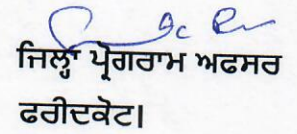 ਜਿਲ੍ਹਾ ਪ੍ਰੋਗਰਾਮ ਅਫਸਰ
ਫਰੀਦਕੋਟ।